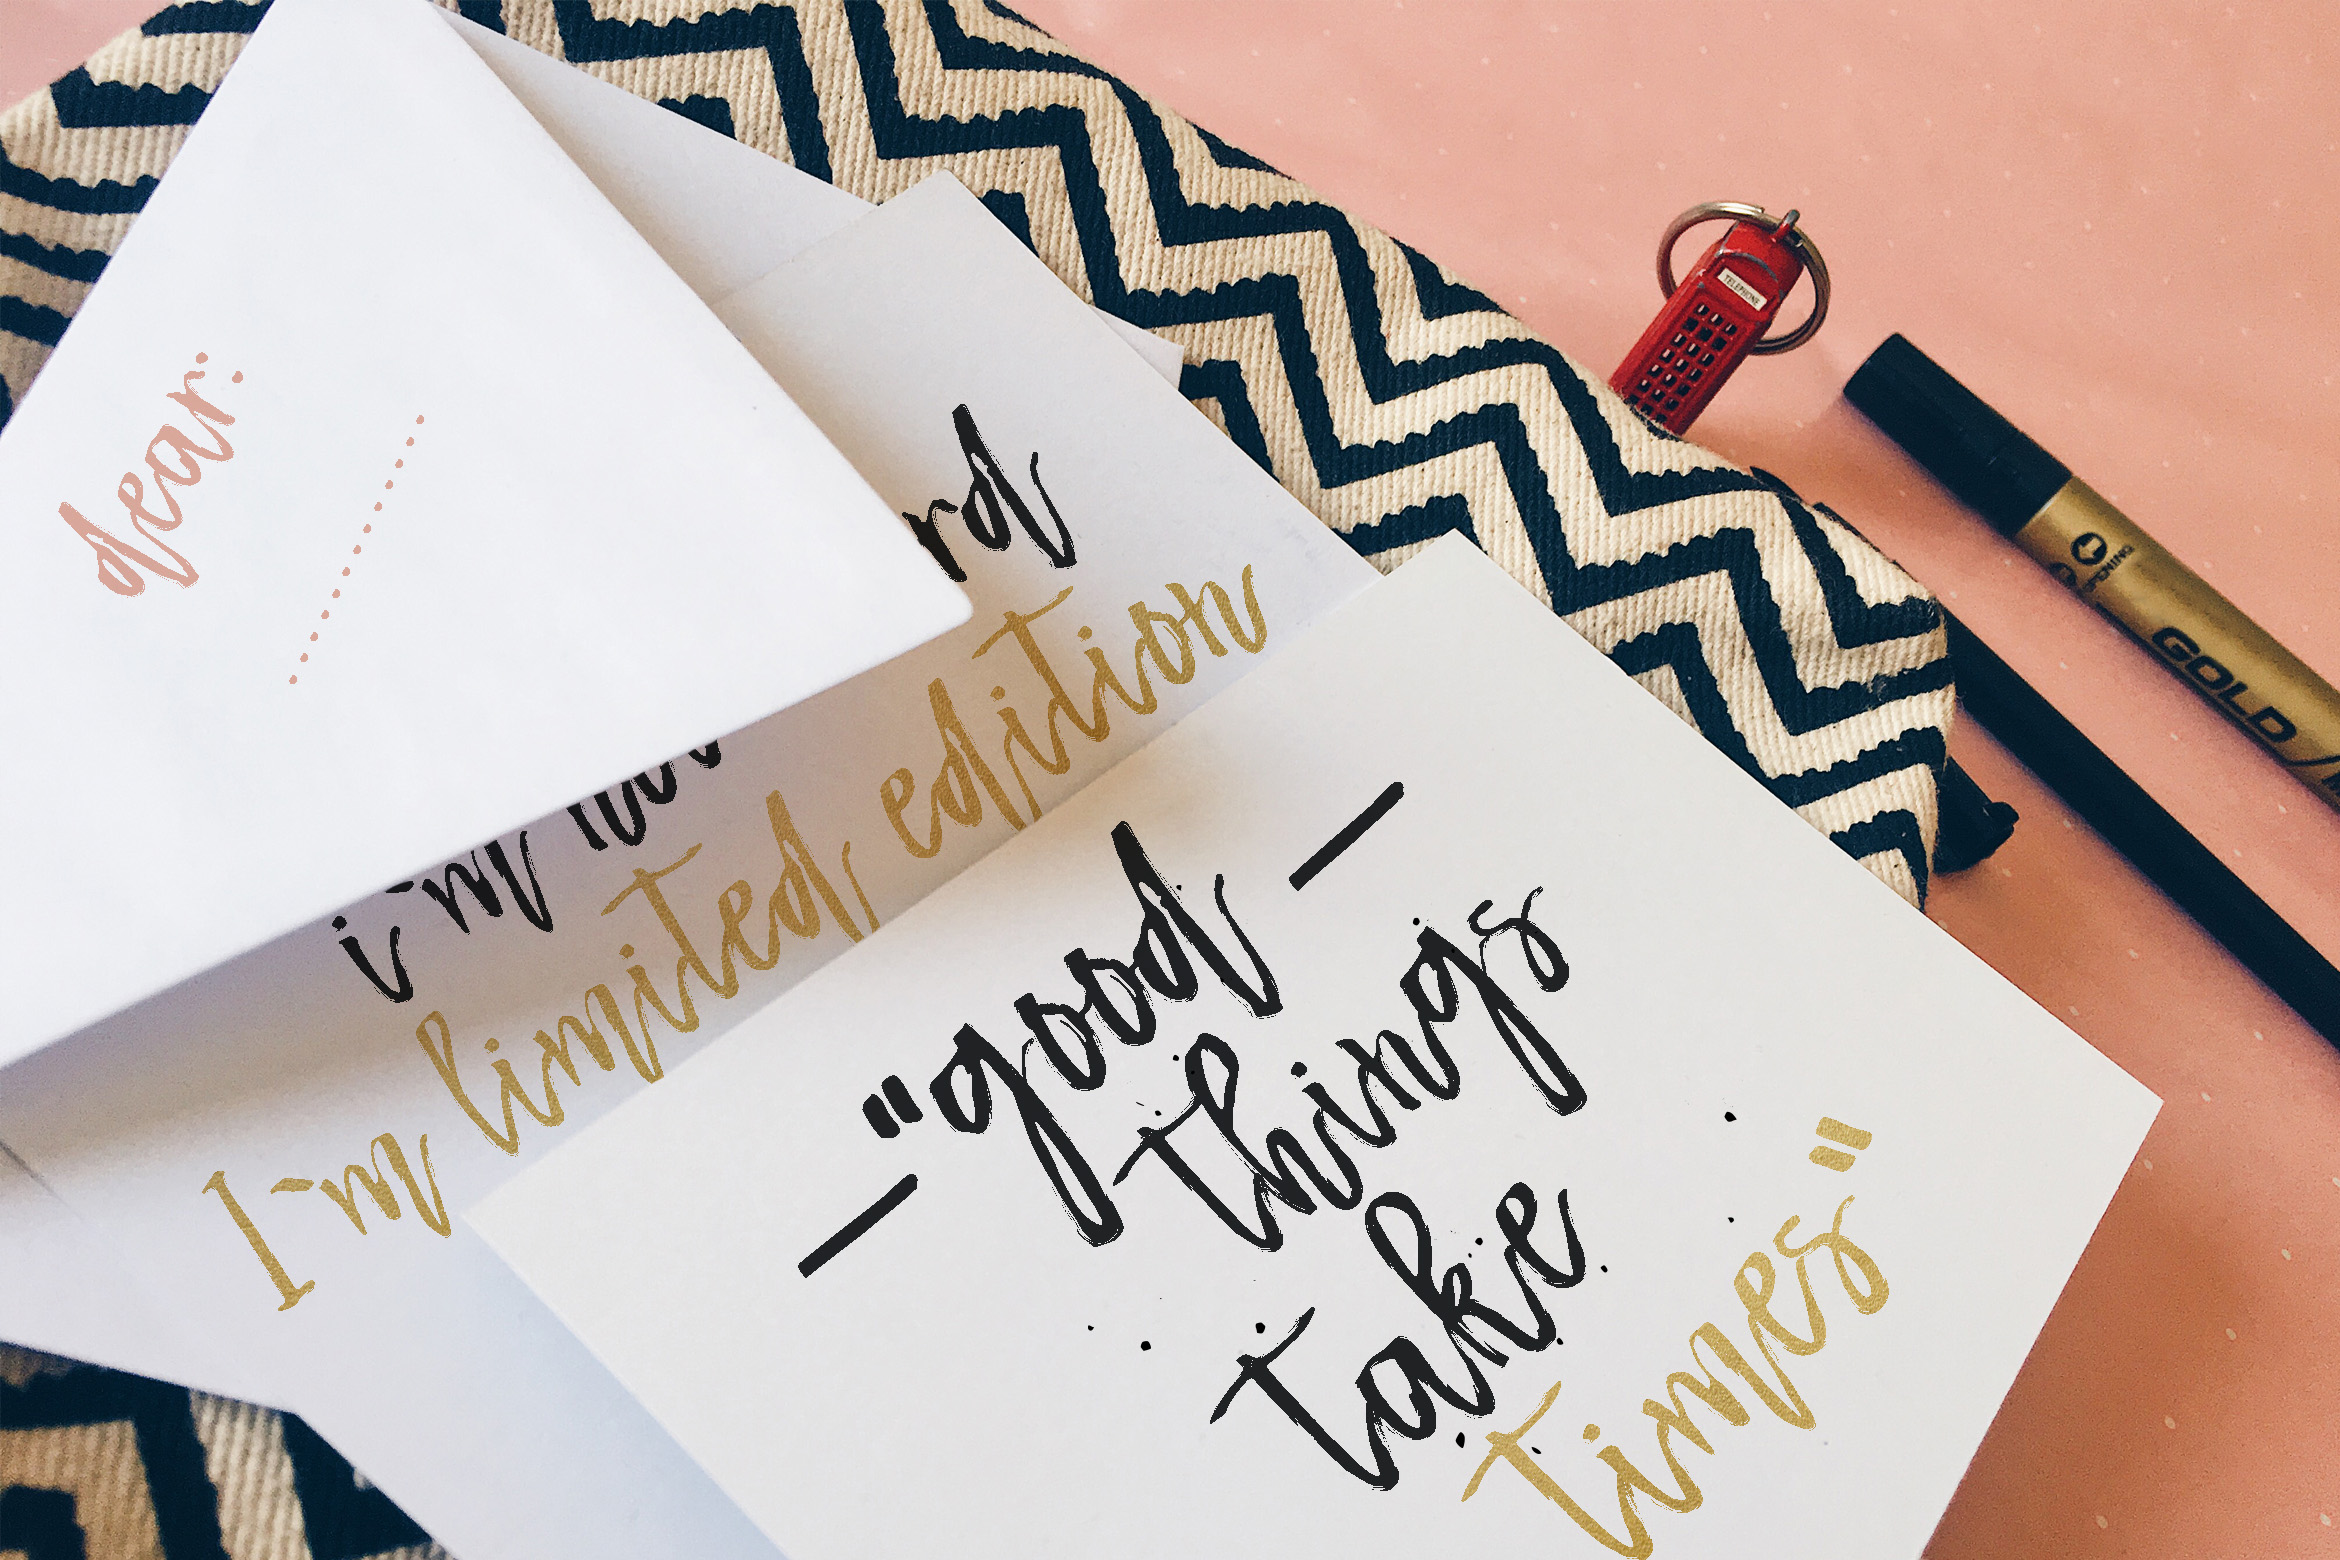 dear:
i'm
rd
I'm limited edition
"good
things
take
times"
TELEPHONE
OPENING
GOLD